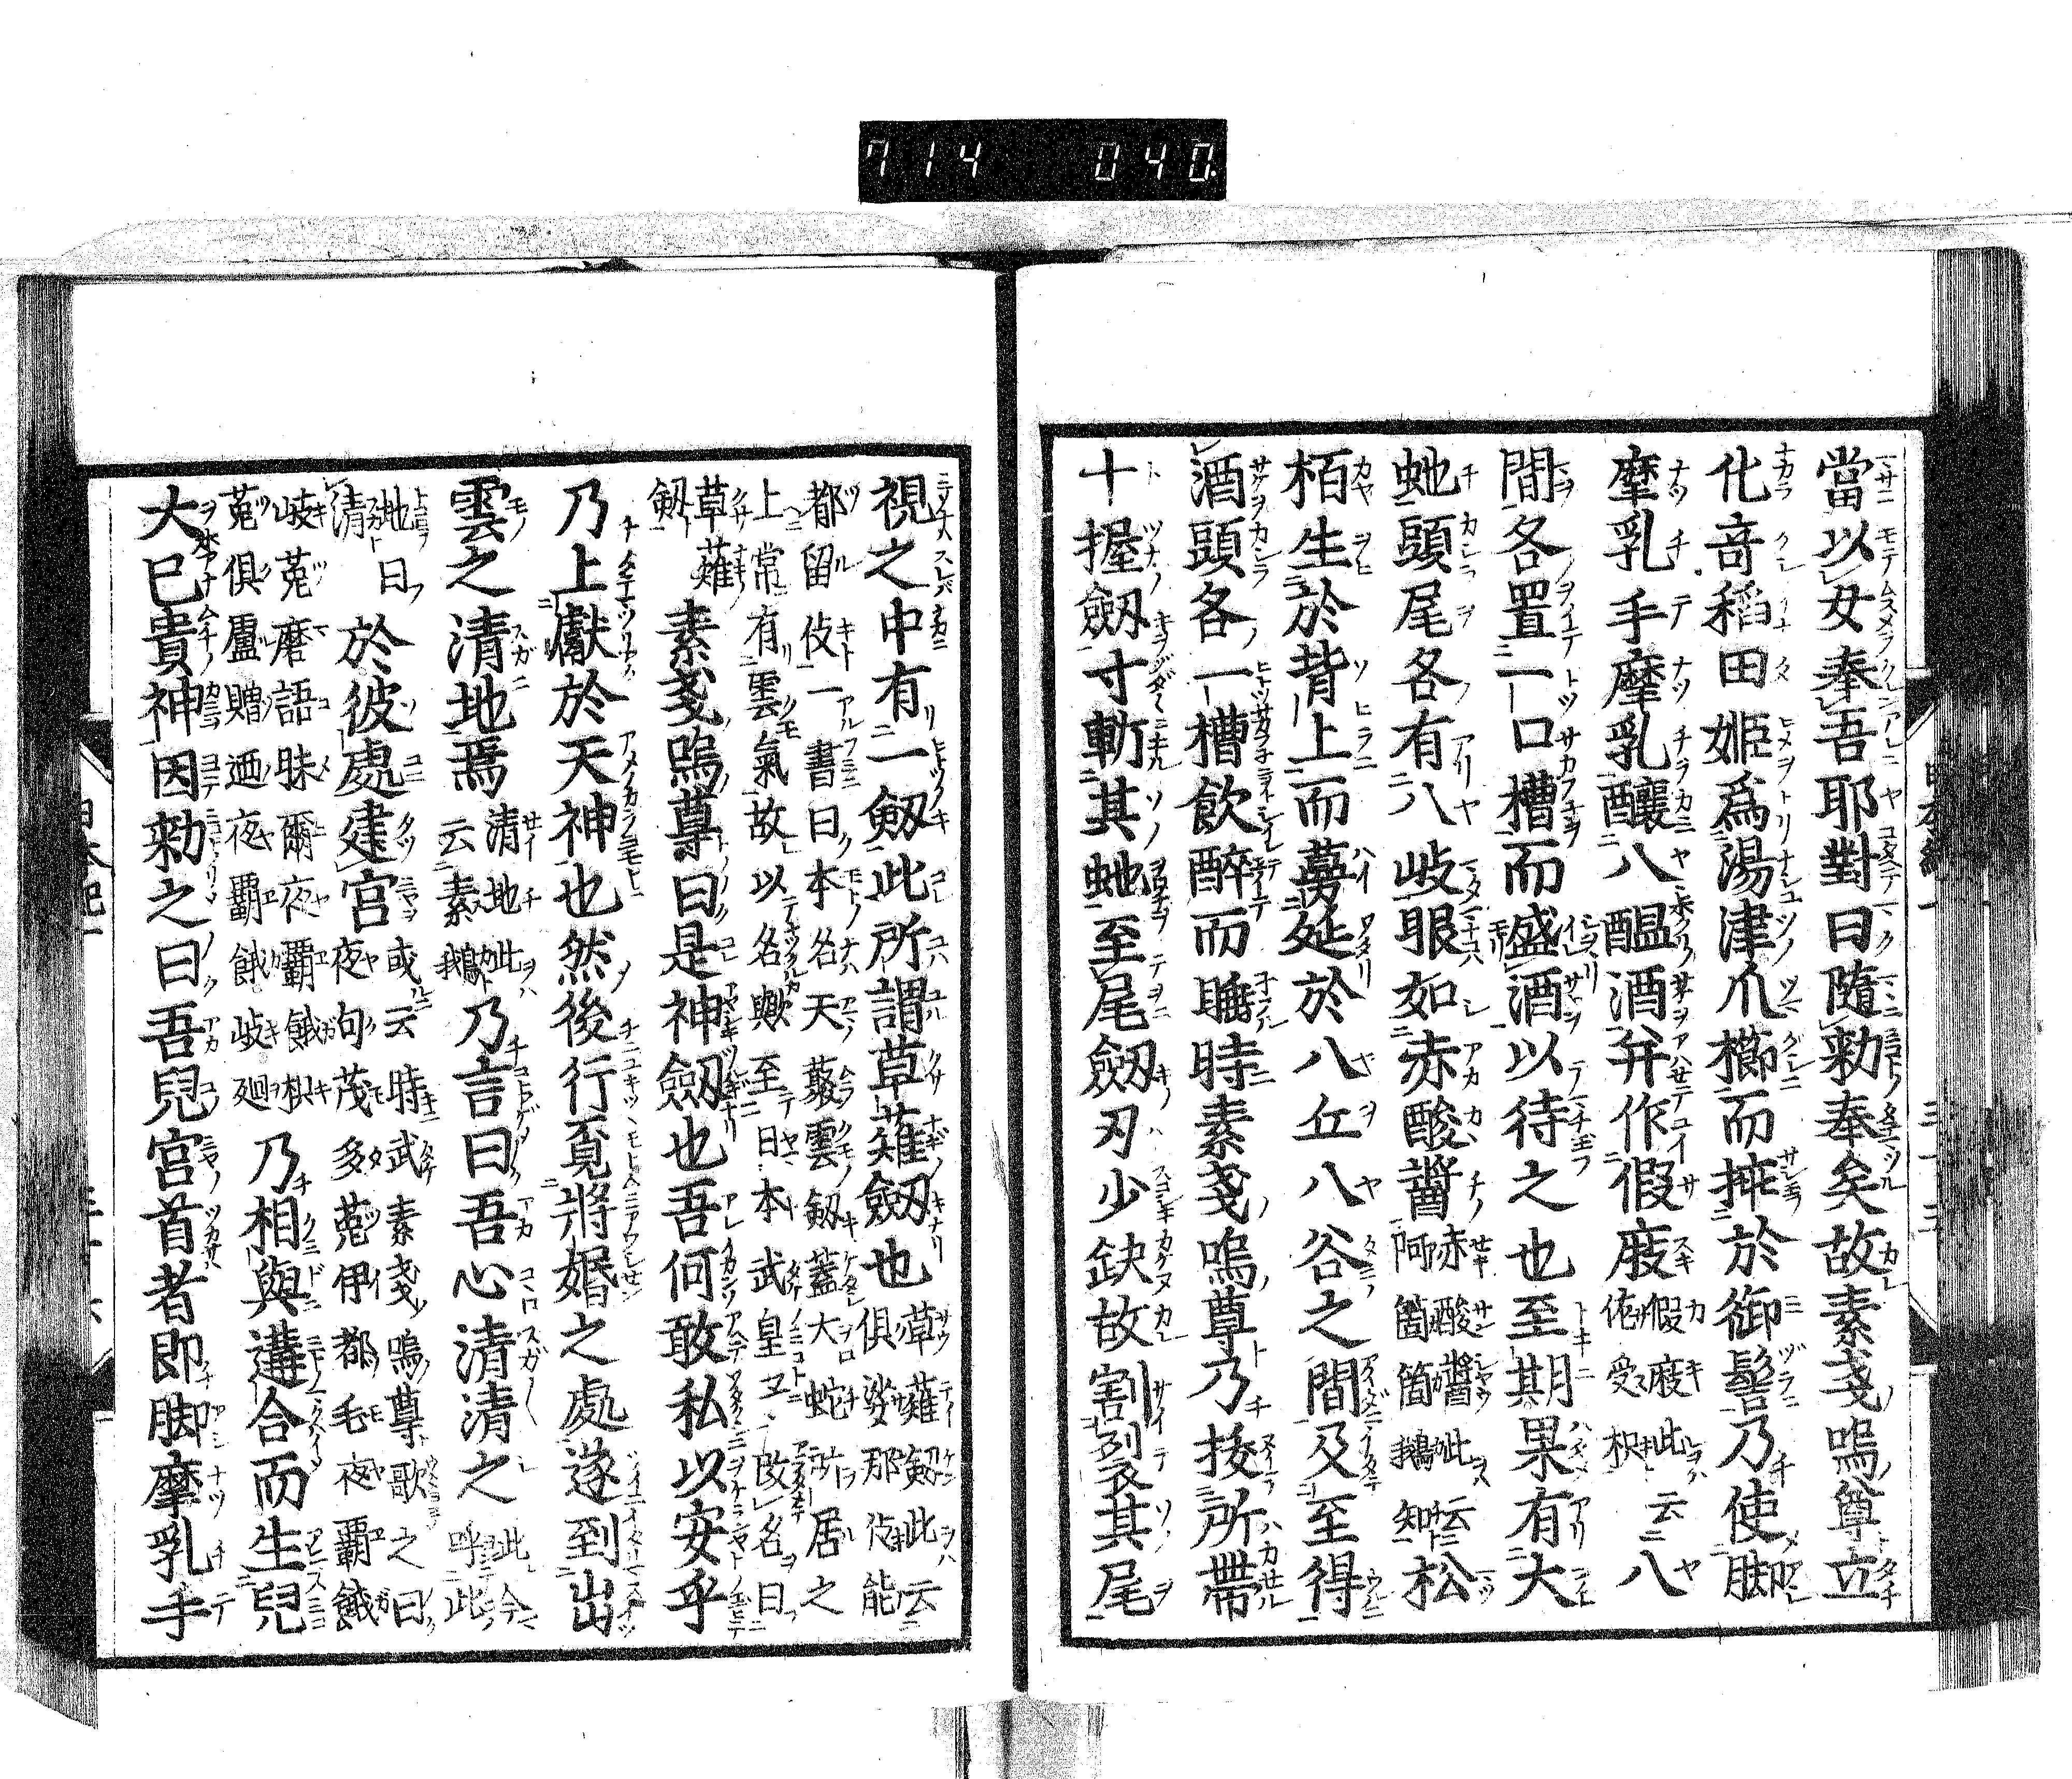 714 040
當以女奉吾耶對曰隨勅奉矣故素戔嗚尊立
化竒稻田姬爲湯津爪櫛而揷於御髻乃使脚
摩乳手摩乳釀八醞酒并作假庪假庪此云佐受枳八
間各置一口槽而盛酒以待之也至期果有大
虵頭尾各有八岐眼如赤酸醬赤酸醬此云阿箇箇鵝知松
栢生於背上而蔓延於八丘八谷之間及至得
酒頭各一槽飮醉而睡時素戔嗚尊乃拔所帶
十握劔寸斬其虵至尾劔刃少缺故割裂其尾
視之中有一劔此所謂草薙劔也草薙劔此云俱娑那伎能
都留伎一書曰本名天藂雲劔蓋大蛇所居之
上常有雲氣故以名歟至日本武皇子改名曰
草薙劔素戔嗚尊曰是神劔也吾何敢私以安乎
乃上獻於天神也然後行覔將婚之處遂到出
雲之清地焉清地此云素鵝乃言曰吾心清清之此今呼此
地曰清於彼處建宮或云時武素戔嗚尊歌之曰夜句茂多菟伊都毛夜覇餓
岐菟磨語昧爾夜覇餓枳菟俱盧贈廼夜覇餓岐廻乃相與遘合而生兒
大巳貴神因勅之曰吾兒宮首者即脚摩乳手